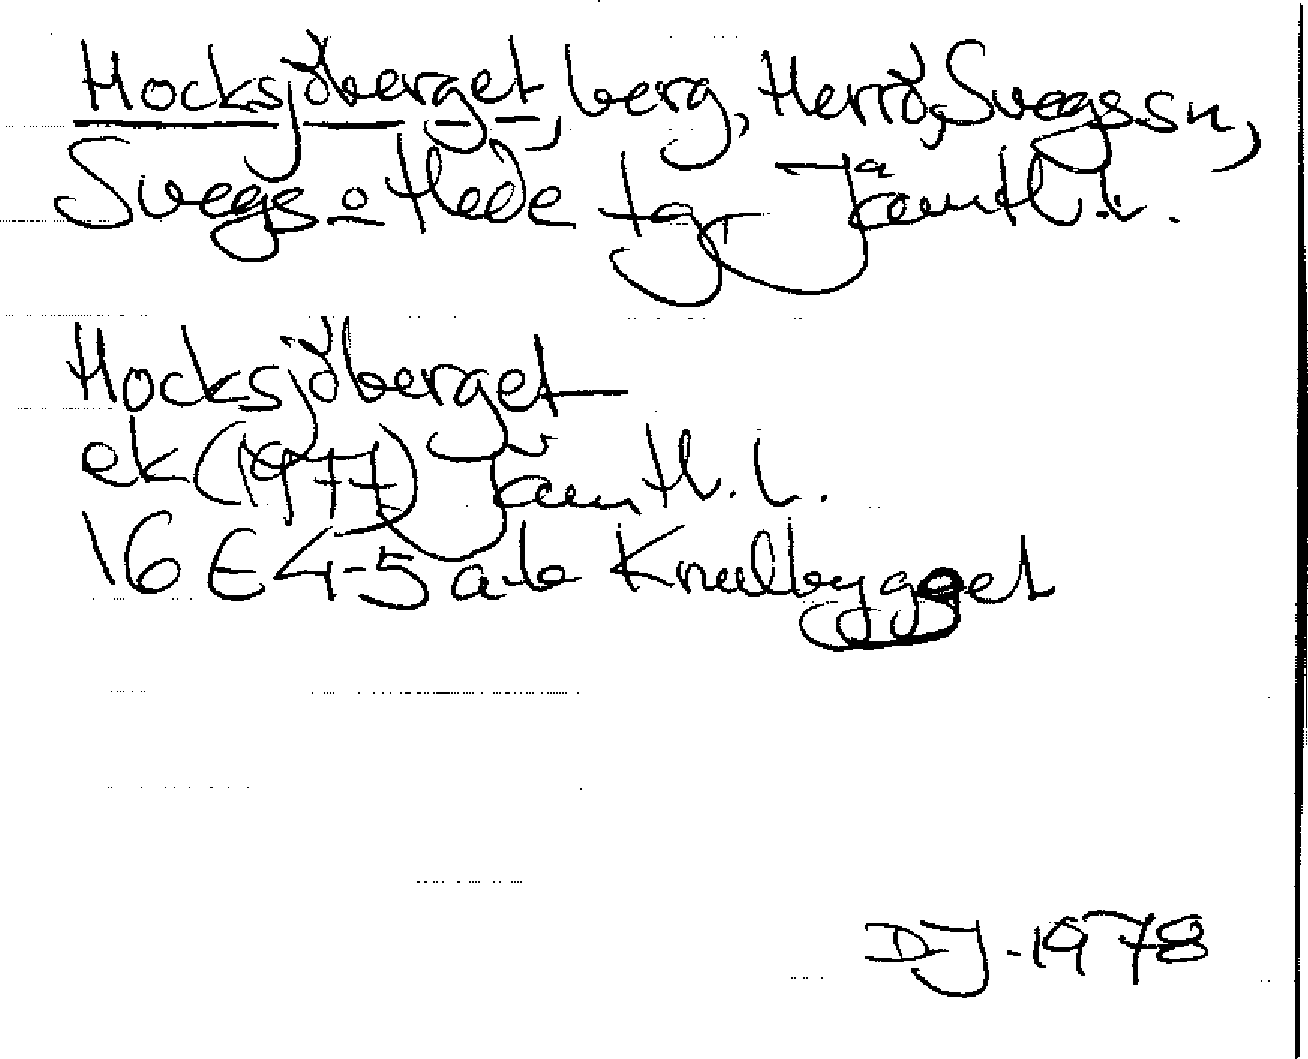 Hocksjöberget, berg, Herrö, Svegs sn,
Svegs o Hede tg, Jämtl. l.
Hocksjöberget—
ek (1977) Jämtl. l.
16 E 4-5 a-b Knullbygget
DJ -1978